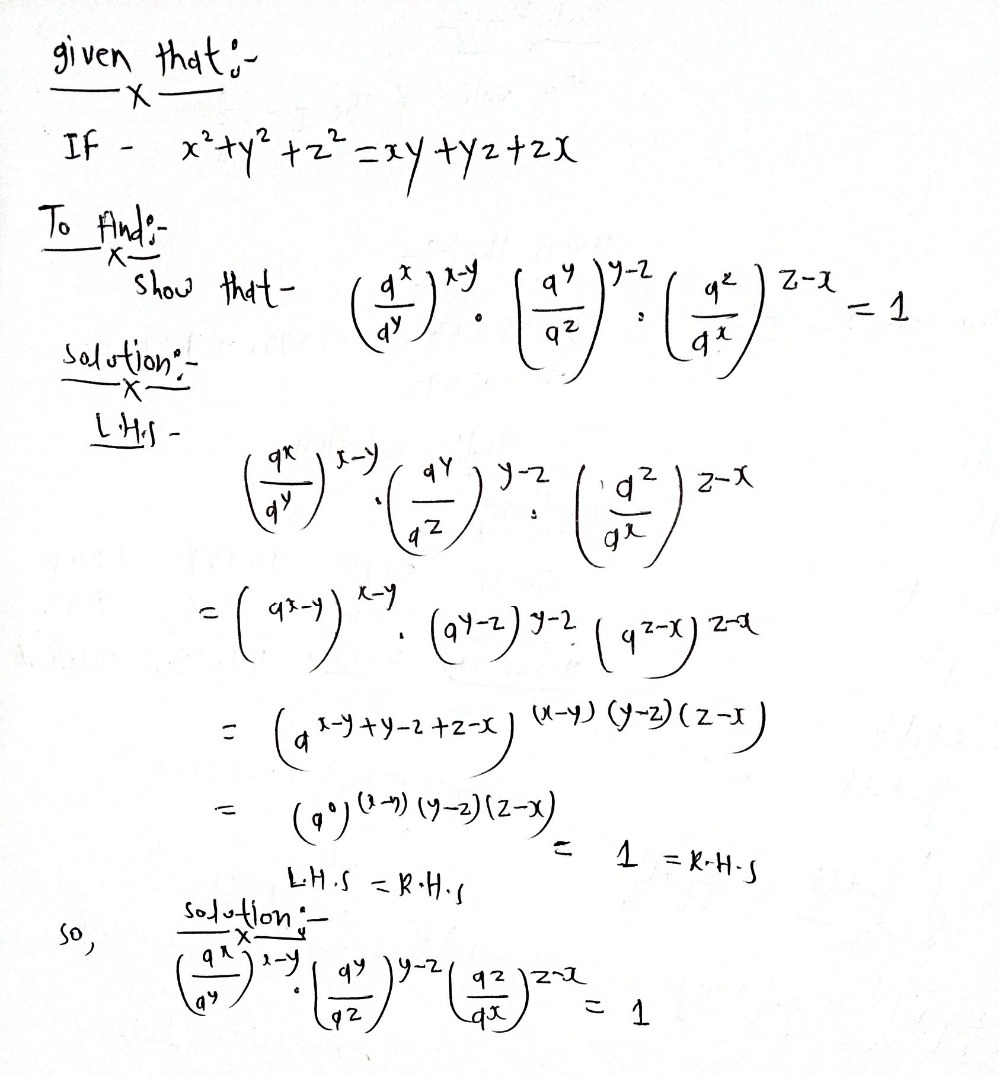 given that:-
If - x²+y²+z²=xy+yz+zx
To find:-
Show that- (aˣ/aʸ)ˣ⁻ʸ . (aʸ/aᶻ)ʸ⁻ᶻ . (aᶻ/aˣ)ᶻ⁻ˣ = 1
Solution:-
L.H.S -
(aˣ/aʸ)ˣ⁻ʸ . (aʸ/aᶻ)ʸ⁻ᶻ . (aᶻ/aˣ)ᶻ⁻ˣ
= (aˣ⁻ʸ)ˣ⁻ʸ . (aʸ⁻ᶻ)ʸ⁻ᶻ . (aᶻ⁻ˣ)ᶻ⁻ˣ
= (aˣ⁻ʸ⁺ʸ⁻ᶻ⁺ᶻ⁻ˣ)⁽ˣ⁻ʸ⁾⁽ʸ⁻ᶻ⁾⁽ᶻ⁻ˣ⁾
= (a⁰)⁽ˣ⁻ʸ⁾⁽ʸ⁻ᶻ⁾⁽ᶻ⁻ˣ⁾ = 1 = R.H.S
L.H.S = R.H.S
so, solution:-
(aˣ/aʸ)ˣ⁻ʸ . (aʸ/aᶻ)ʸ⁻ᶻ (aᶻ/aˣ)ᶻ⁻ˣ = 1